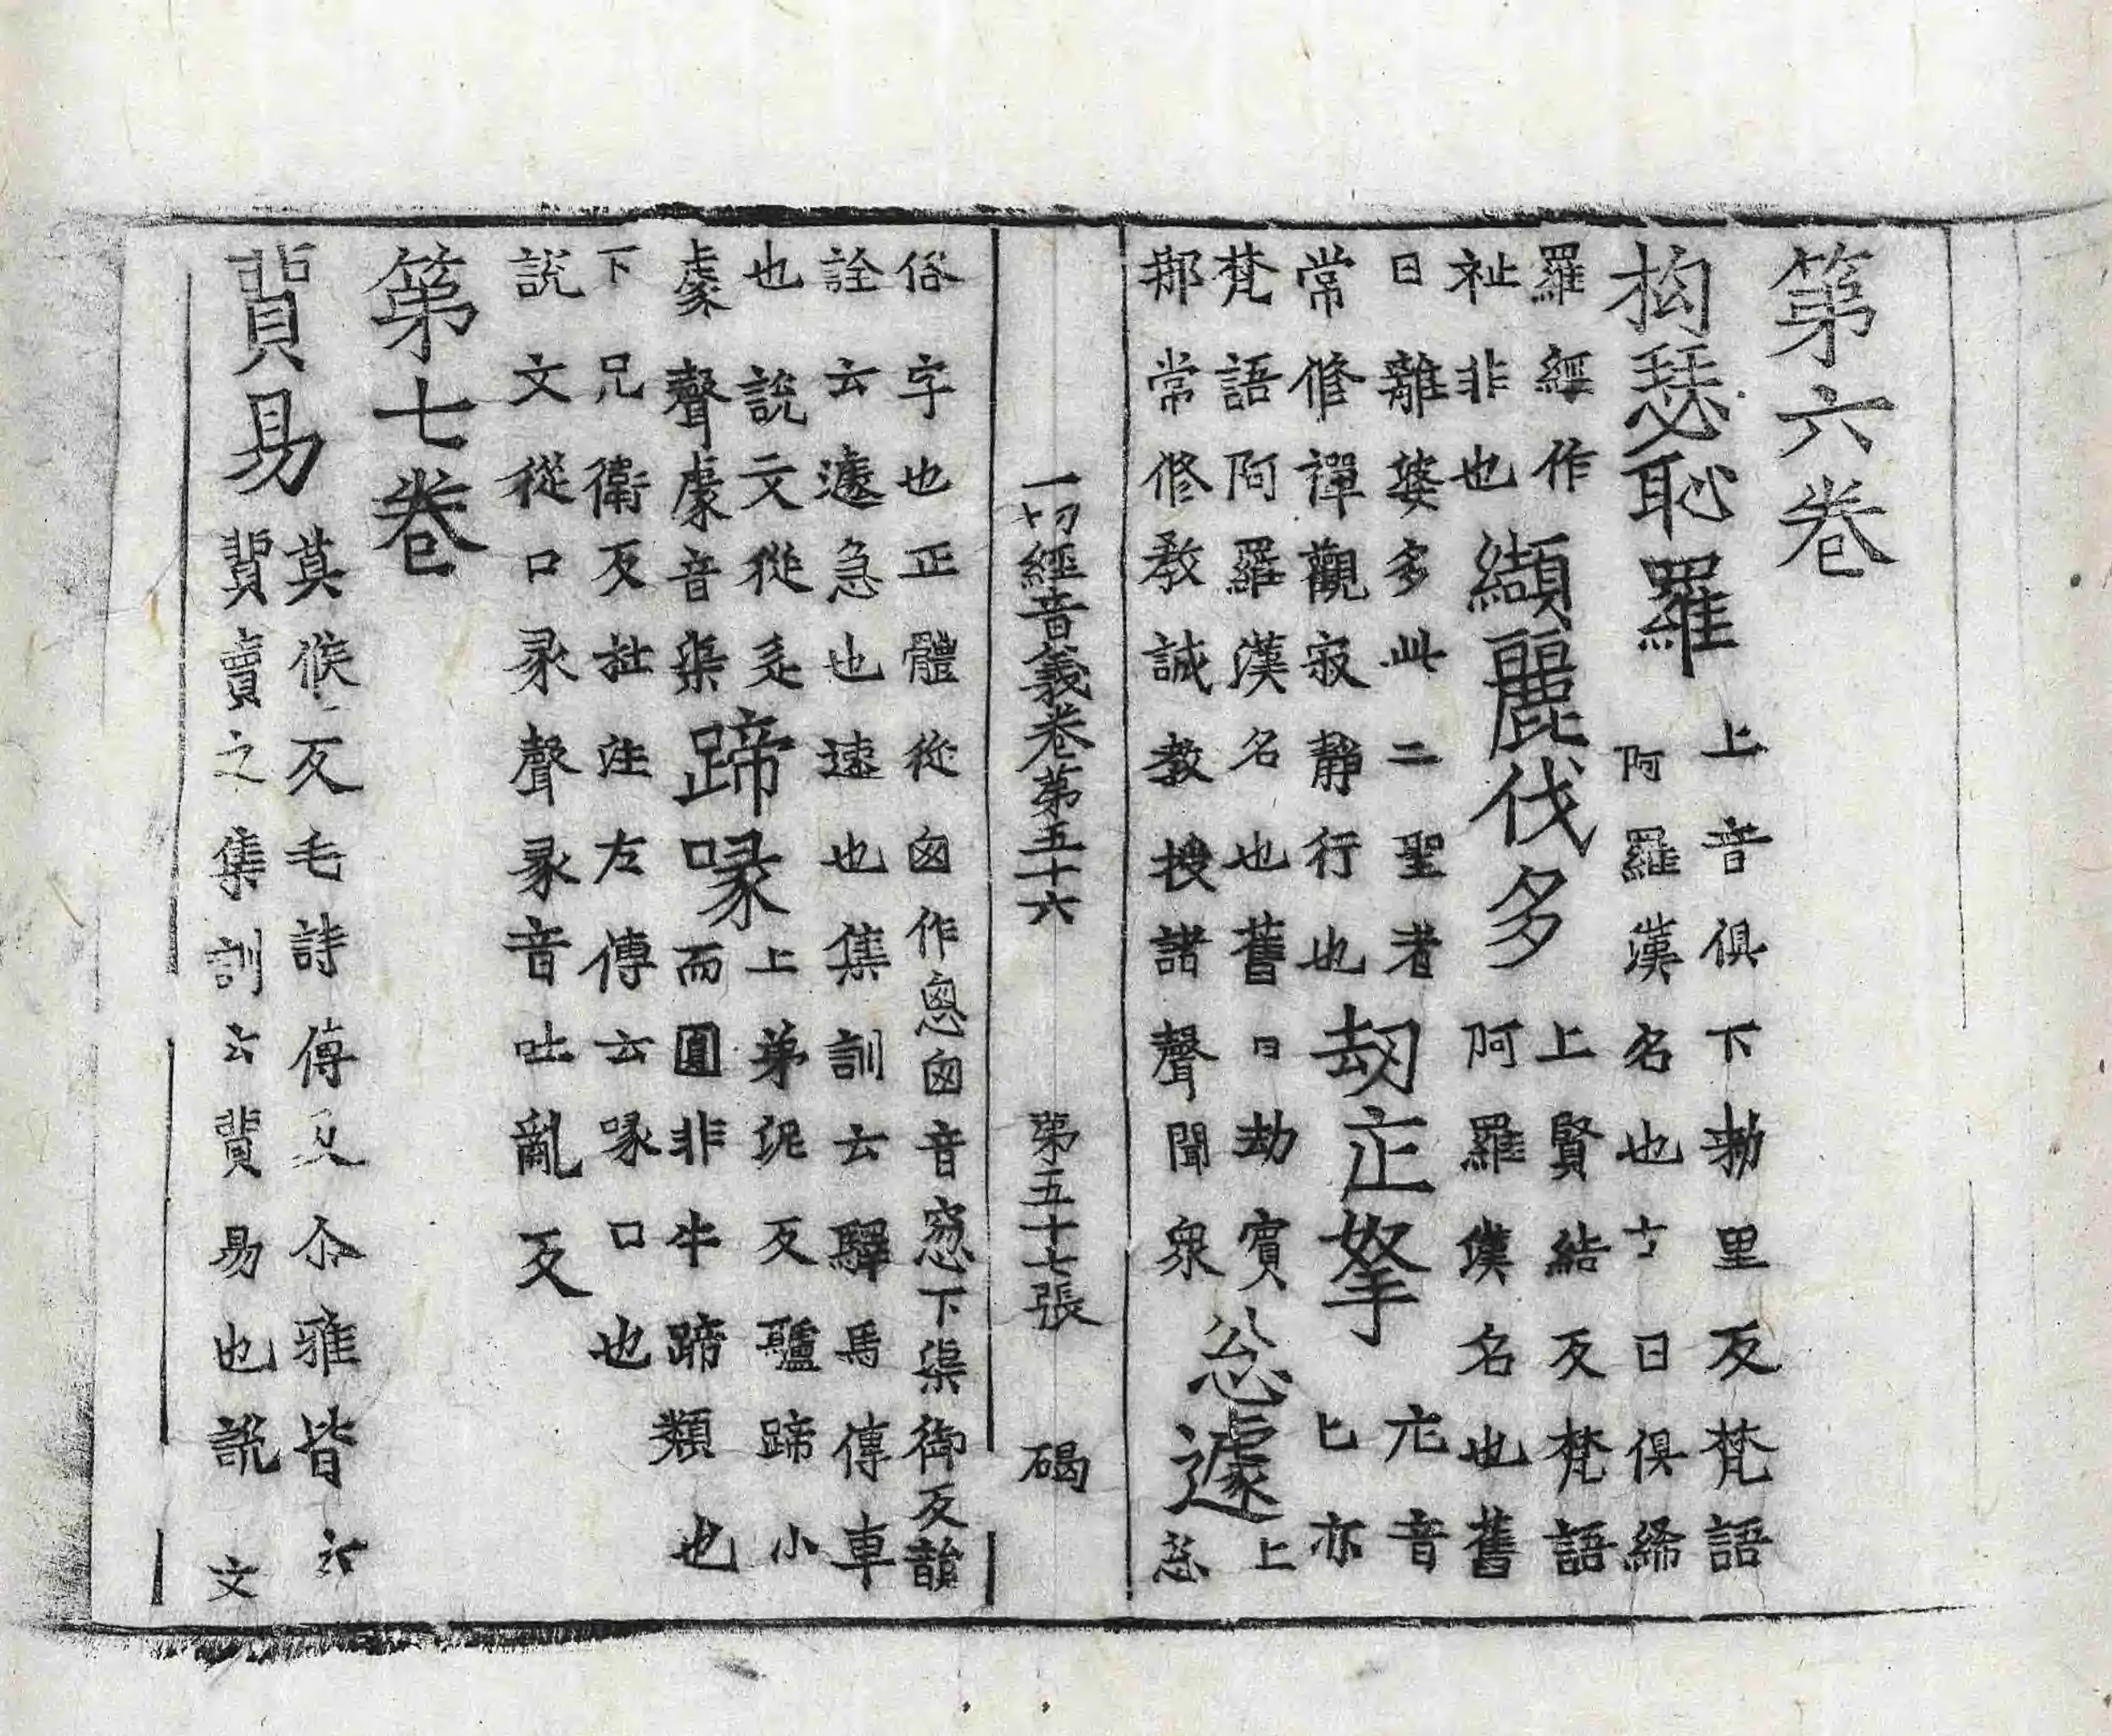 第六卷
拘瑟恥羅上音俱下勑里反梵語
阿羅漢名也古曰俱絺
羅經作
祉非也纈麗伐多上賢結反梵語
阿羅漢名也舊
曰離婆多此二聖者
常修禪觀寂靜行也劫疋拏音
匕亦
梵語阿羅漢名也舊曰劫賓
那常修教誡教授諸聲聞衆忩遽上
忩
一切經音義卷第五十六 第五十七張 碣
俗字也正體從囪作悤囪音窓下渠御反韻
詮云遽急也速也集訓云驛馬傳車
也說文從辵
豦聲豦音渠蹄喙上弟泥反驢蹄小
而圓非牛蹄類也
下兄衛反拙注左傳云喙口也
說文從口彖聲彖音吐亂反
第七卷
貿易莫候反毛詩傳及尒雅皆云
貿賣之集訓云貿易也說文